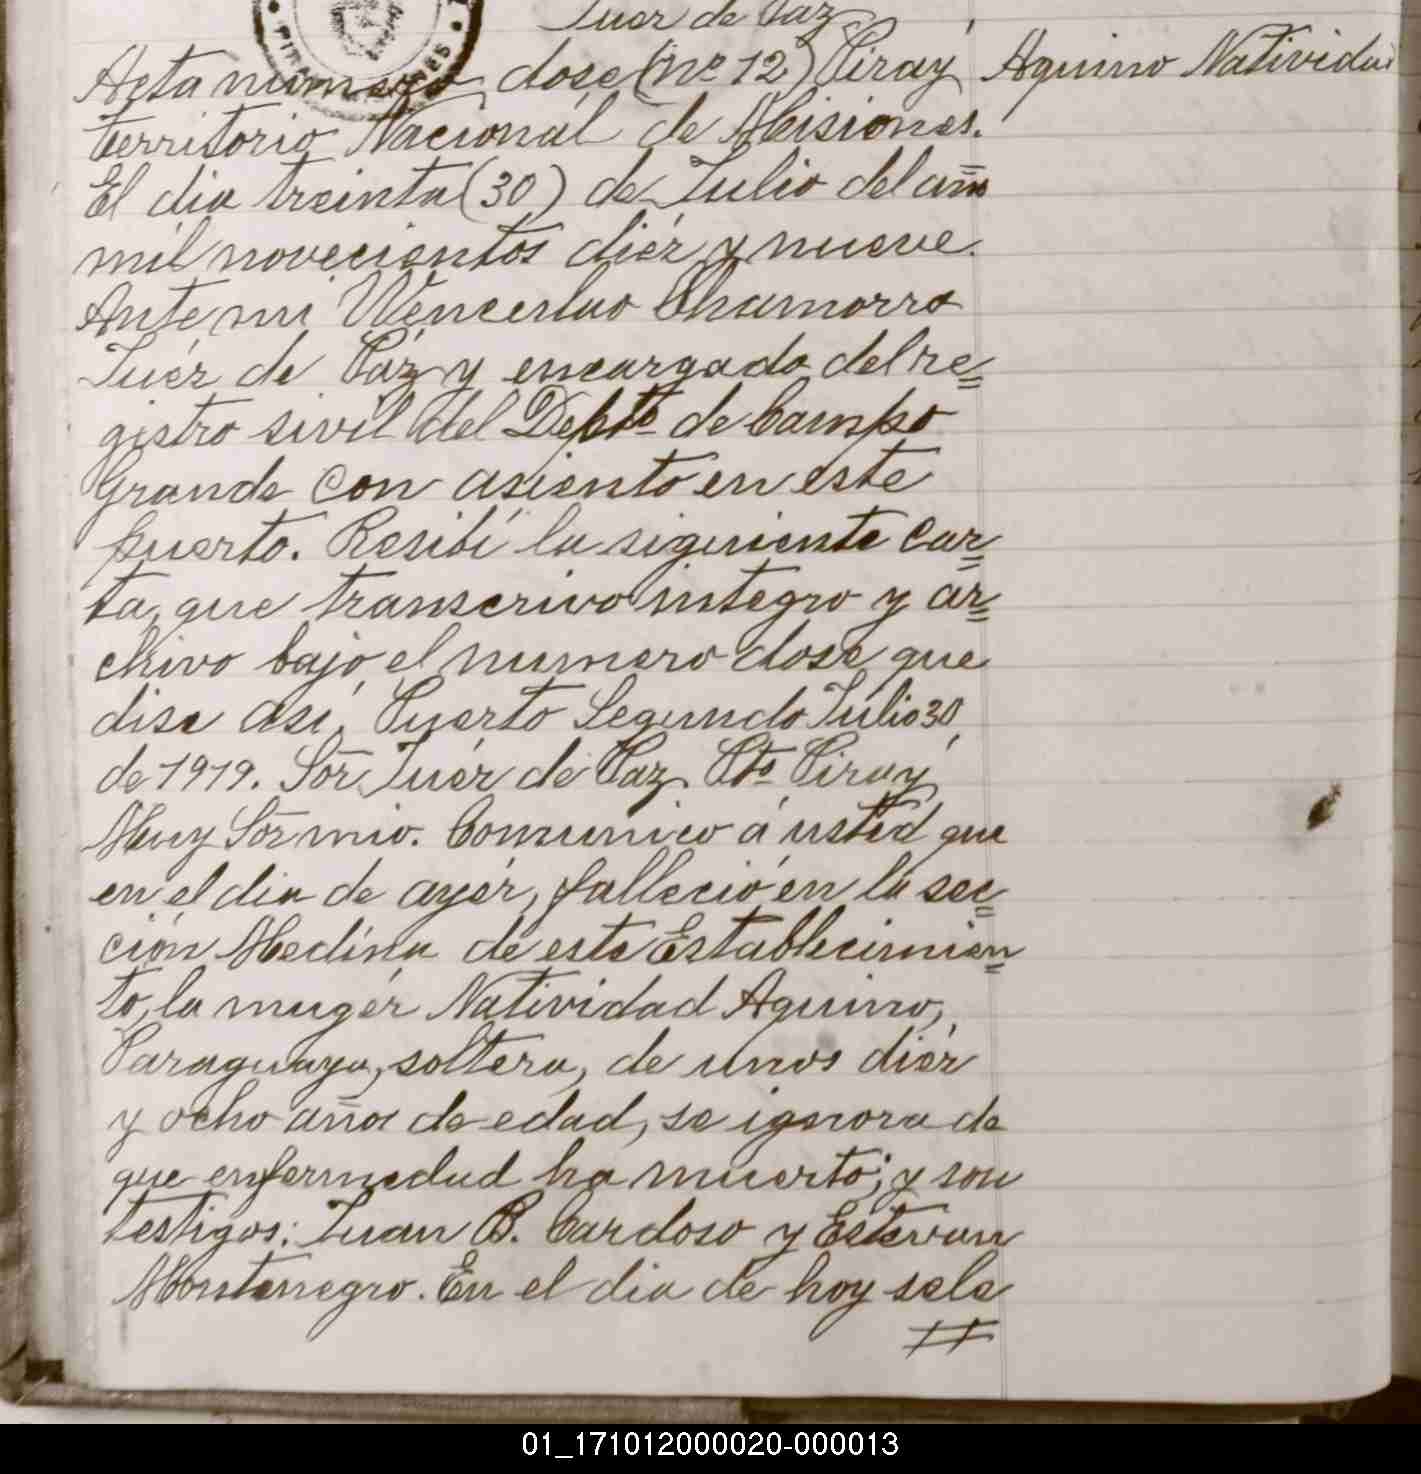 Juez de Paz
Acta numero dose (nº 12) Piray
Aquino Natividad
territorio Nacional de Misiones.
El dia treinta (30) de Julio del año
mil novecientos diéz y nueve.
Ante mi Wenceslao Chamorro
Juéz de Páz y encargado del re=
gistro sivil del Depto de Campo
Grande con asiento en este
puerto. Resibí la siguiente car=
ta, que transcrivo integro y ar=
chivo bajo el numero dose que
dise asi, Puerto Segundo Julio 30
de 1919. Sor Juéz de Paz Pto Piray
Muy Sor mio. Comunico á usted que
en el dia de ayér, falleció en la sec=
ción Medina de este Establecimien=
to, la mugér Natividad Aquino,
Paraguaya, soltera, de unos diéz
y ocho años de edad, se ignora de
que enfermedad ha muerto; y son
testigos: Juan B. Cardoso y Estevan
Montenegro. En el dia de hoy sele
01_171012000020-000013